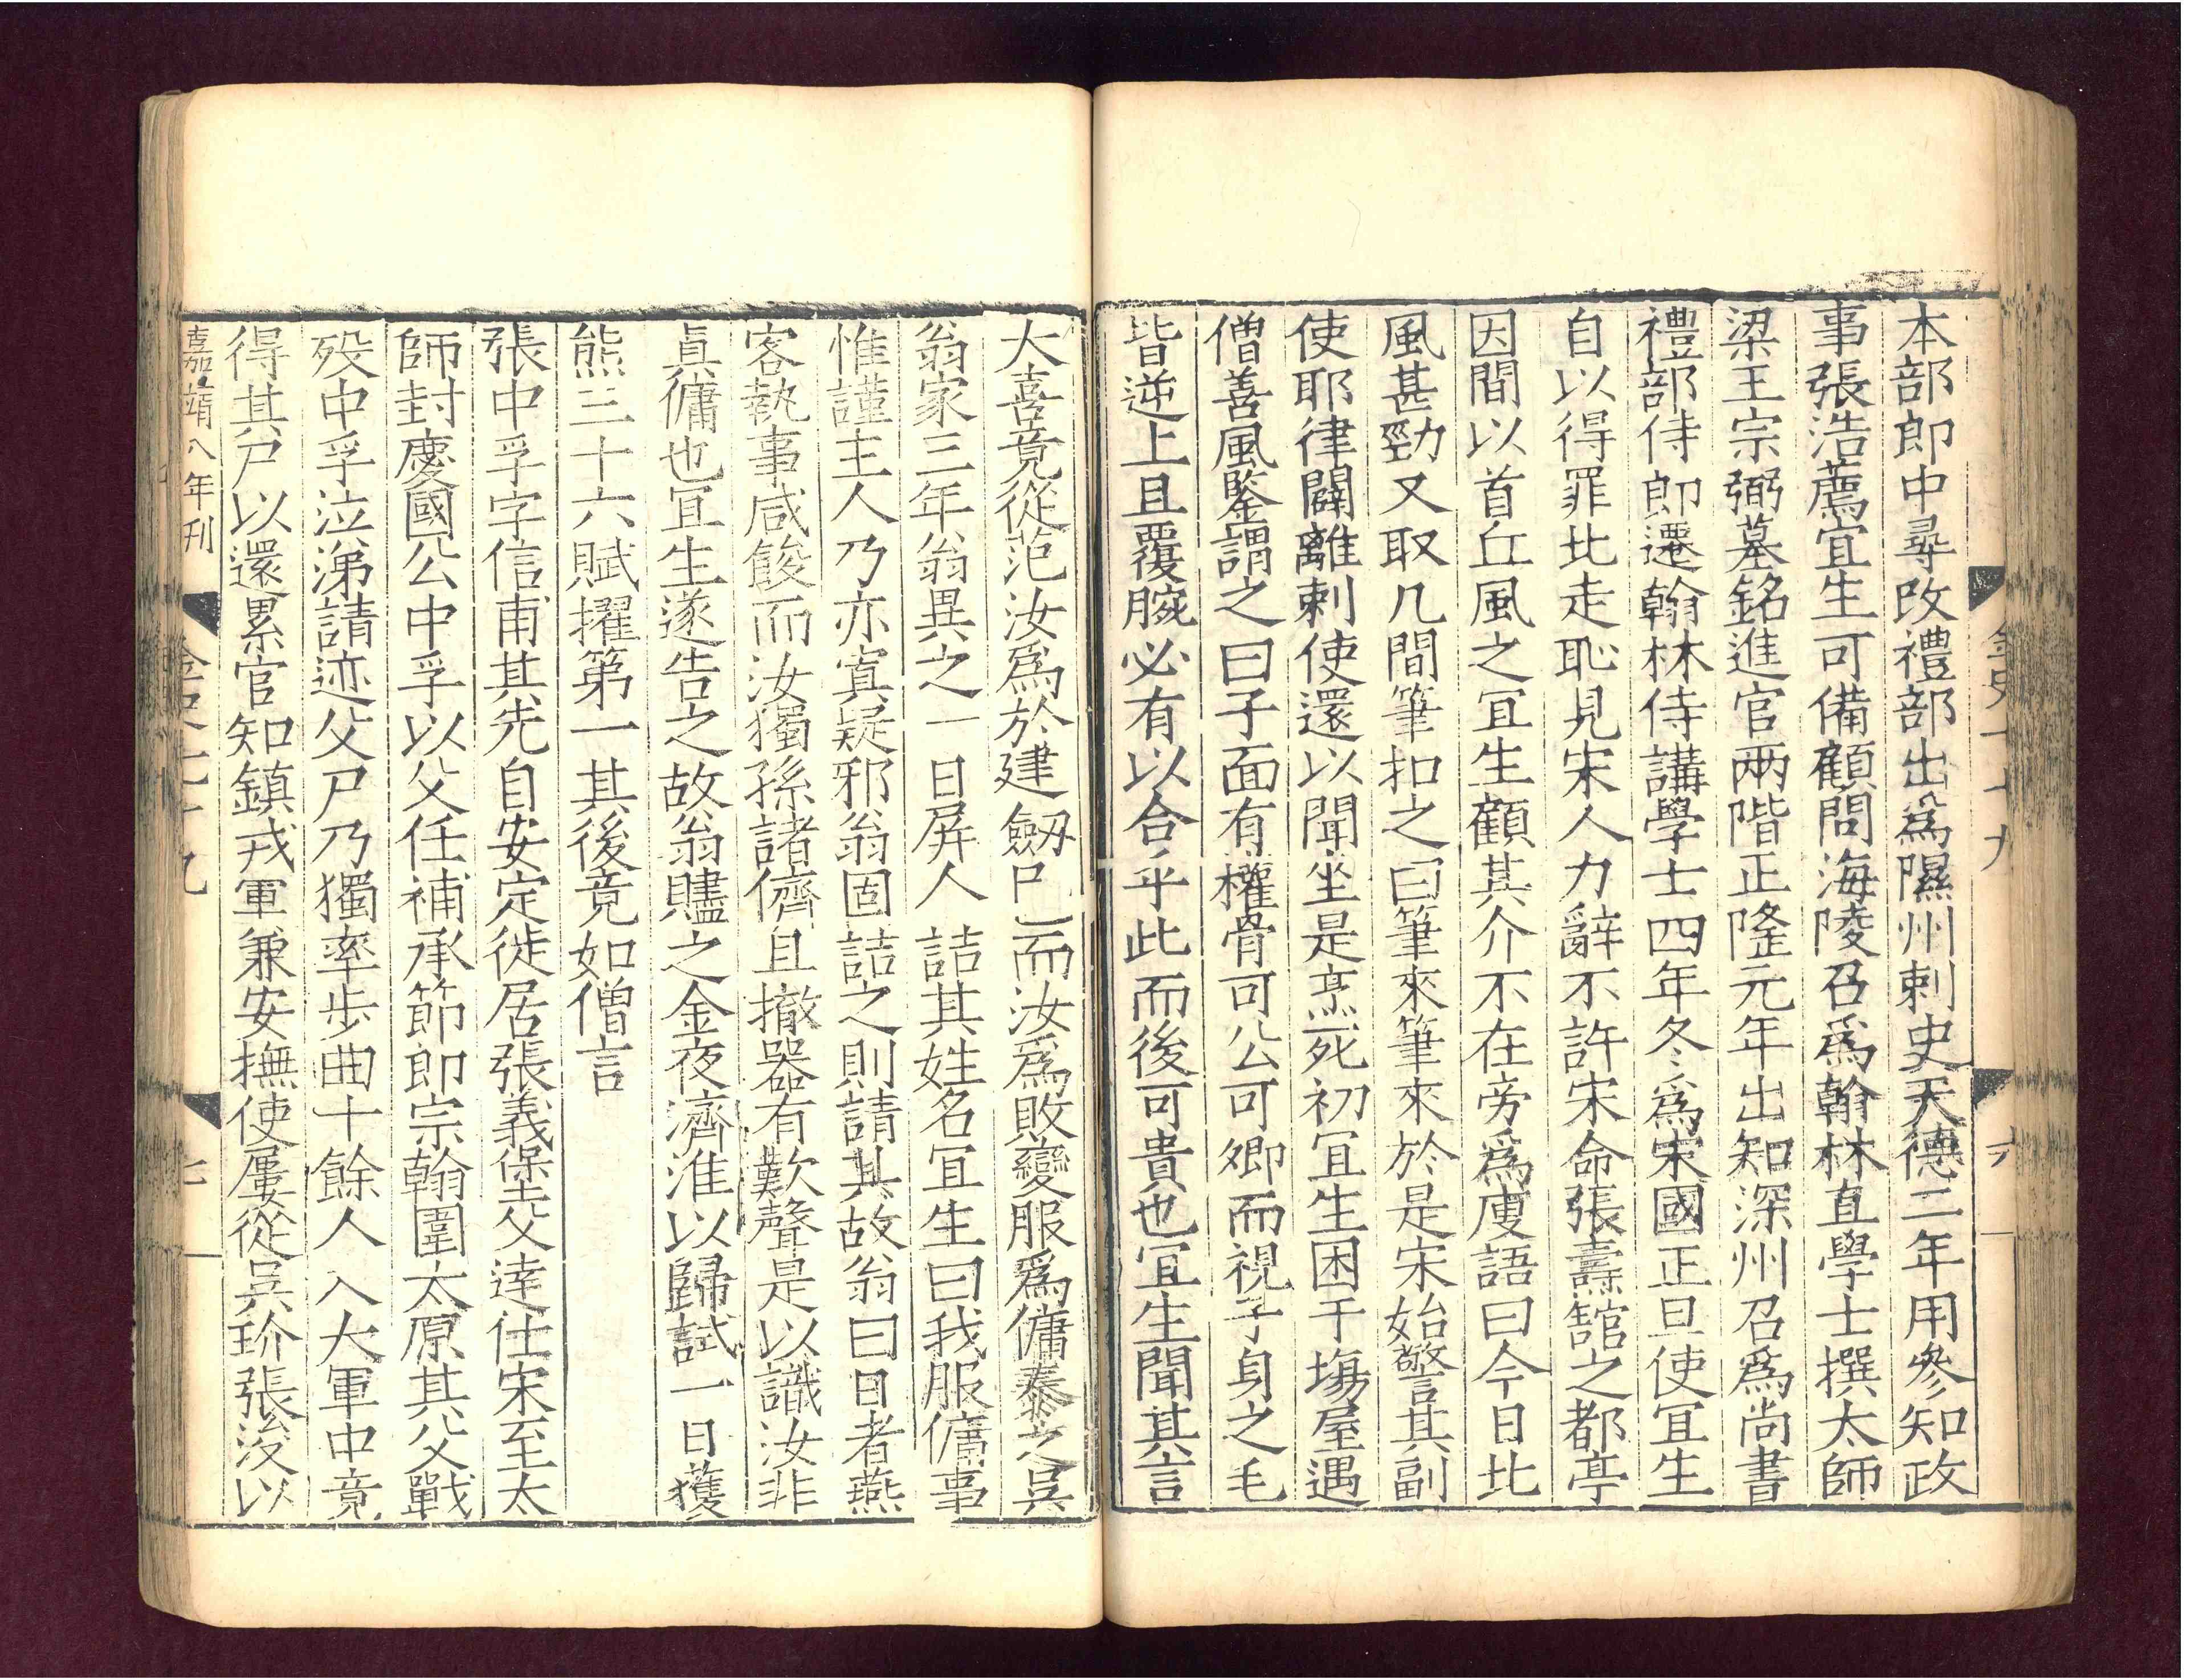 本部郎中尋改禮部出爲隰州刺史天德二年用參知政
事張浩薦宜生可備顧問海陵召爲翰林直學士撰太師
梁王宗弼墓銘進官兩階正隆元年出知深州召爲尚書
禮部侍郎遷翰林侍講學士四年冬爲宋國正旦使宜生
自以得罪北走恥見宋人力辭不許宋命張燾舘之都亭
因間以首丘風之宜生顧其介不在旁爲廋語曰今日北
風甚勁又取几間筆扣之曰筆來筆來於是宋始警其副
使耶律闢離剌使還以聞坐是烹死初宜生困于塲屋遇
僧善風鑒謂之曰子面有權骨可公可卿而視子身之毛
皆逆上且覆腕必有以合乎此而後可貴也宜生聞其言
金史七十九
六
大喜竟從范汝爲於建劒已而汝爲敗變服爲傭泰之吳
翁家三年翁異之一日屏人詰其姓名宜生曰我服傭事
惟謹主人乃亦寘疑邪翁固詰之則請其故翁曰日者燕
客執事咸餕而汝獨孫諸儕且撤器有歎聲是以識汝非
眞傭也宜生遂告之故翁贐之金夜濟淮以歸試一日獲
熊三十六賦擢第一其後竟如僧言
張中孚字信甫其先自安定徙居張義堡父逵仕宋至太
師封慶國公中孚以父任補承節郎宗翰圍太原其父戰
歿中孚泣涕請迹父尸乃獨率步曲十餘人入大軍中竟
得其尸以還累官知鎮戎軍兼安撫使屢從吳玠張浚以
嘉靖八年刊
金史七十九
七